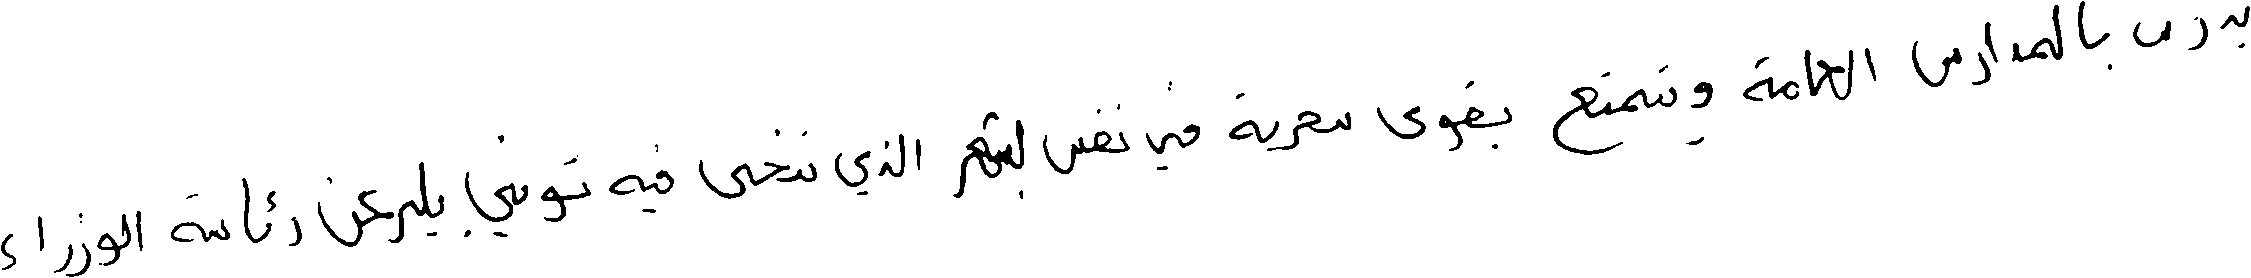 يدرس بالمدارس العامة ويتمتع بقوى سحرية في نفس الشهر الذي تنحى فيه توني بلير عن رئاسة الوزراء